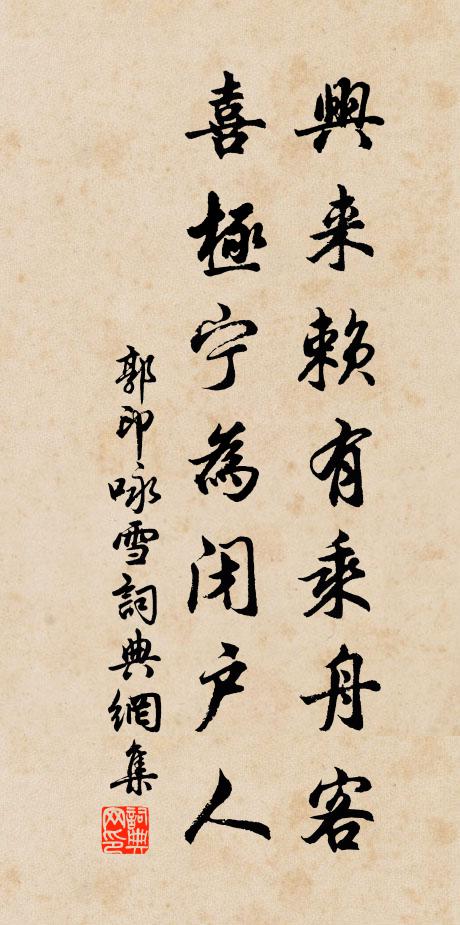 興来赖有乘舟客
喜極宁為闭户人
郭印咏雪詞典網集
詞典网印